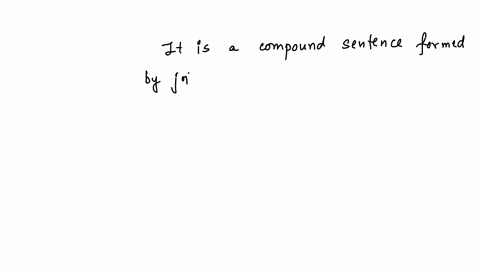 It is a compound sentence formed
by